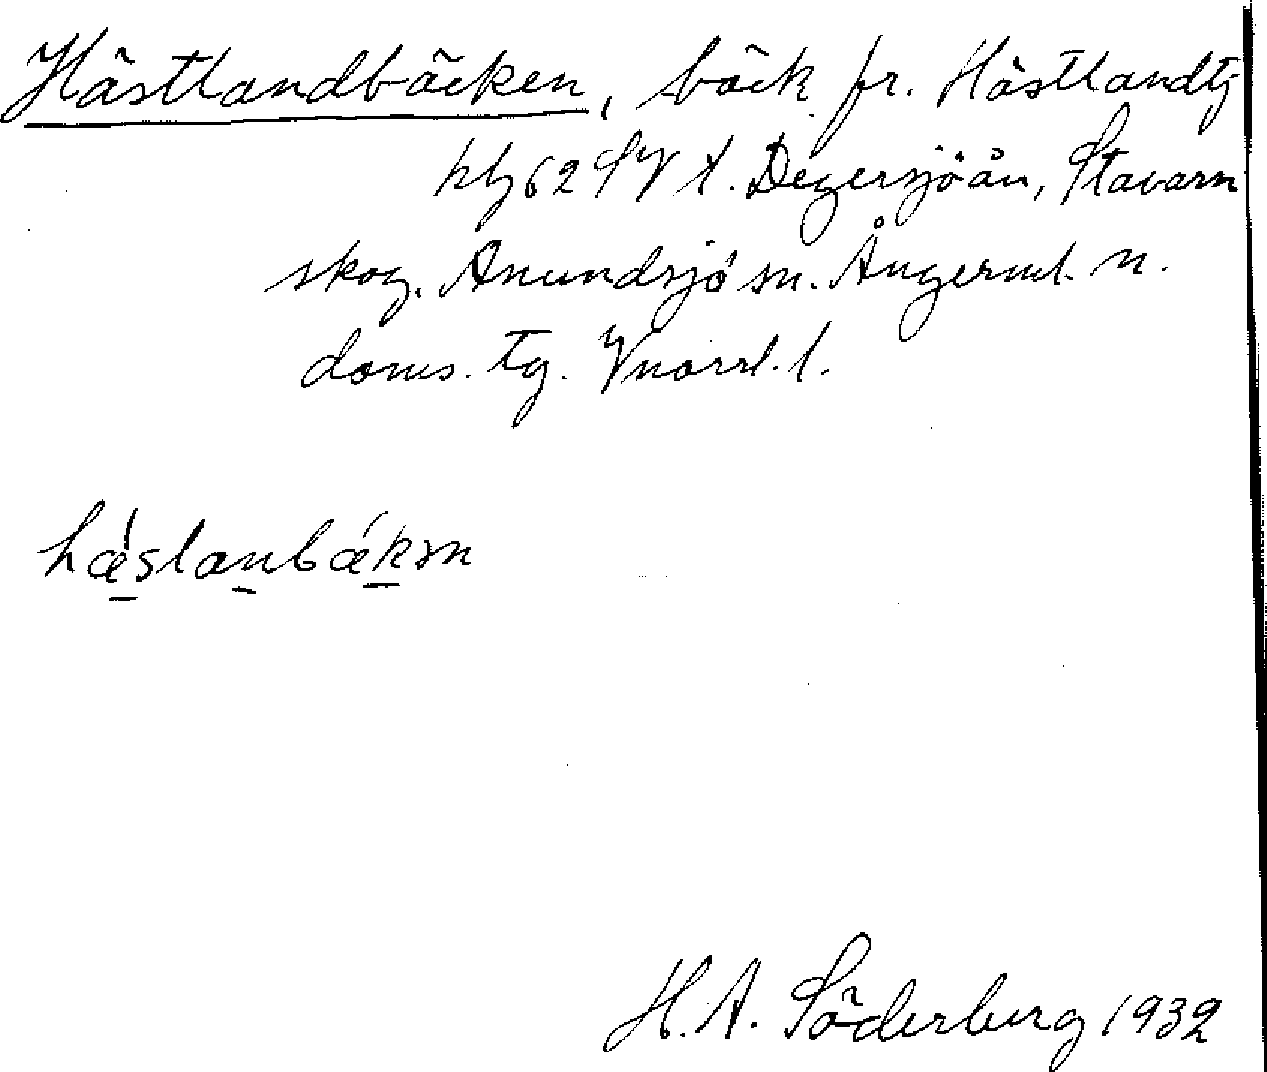 Hästlandbäcken, bäck fr. Hästlandtj
htj 62 SV t. Degersjöån, Stavarn
skog. Anundsjö sn. Ångerml. n.
doms. tg. Vnorrl. l.
hǽslanbǽkɜn
H. A. Söderberg 1932